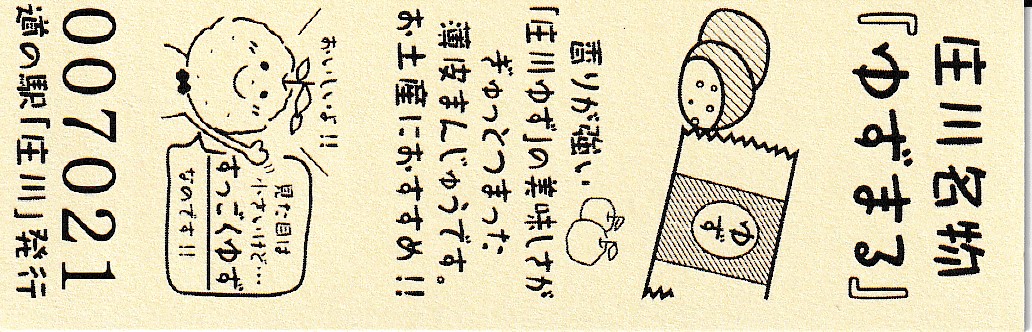 庄川名物
『ゆずまる』
ゆず
香りが強い
「庄川ゆず」の美味しさが
ぎゅっとつまった
薄皮まんじゅうです。
お土産におすすめ!!
おいしいよ!!
見た目は
小さいけど…
すっごくゆず
なのです!!
007021
道の駅「庄川」発行